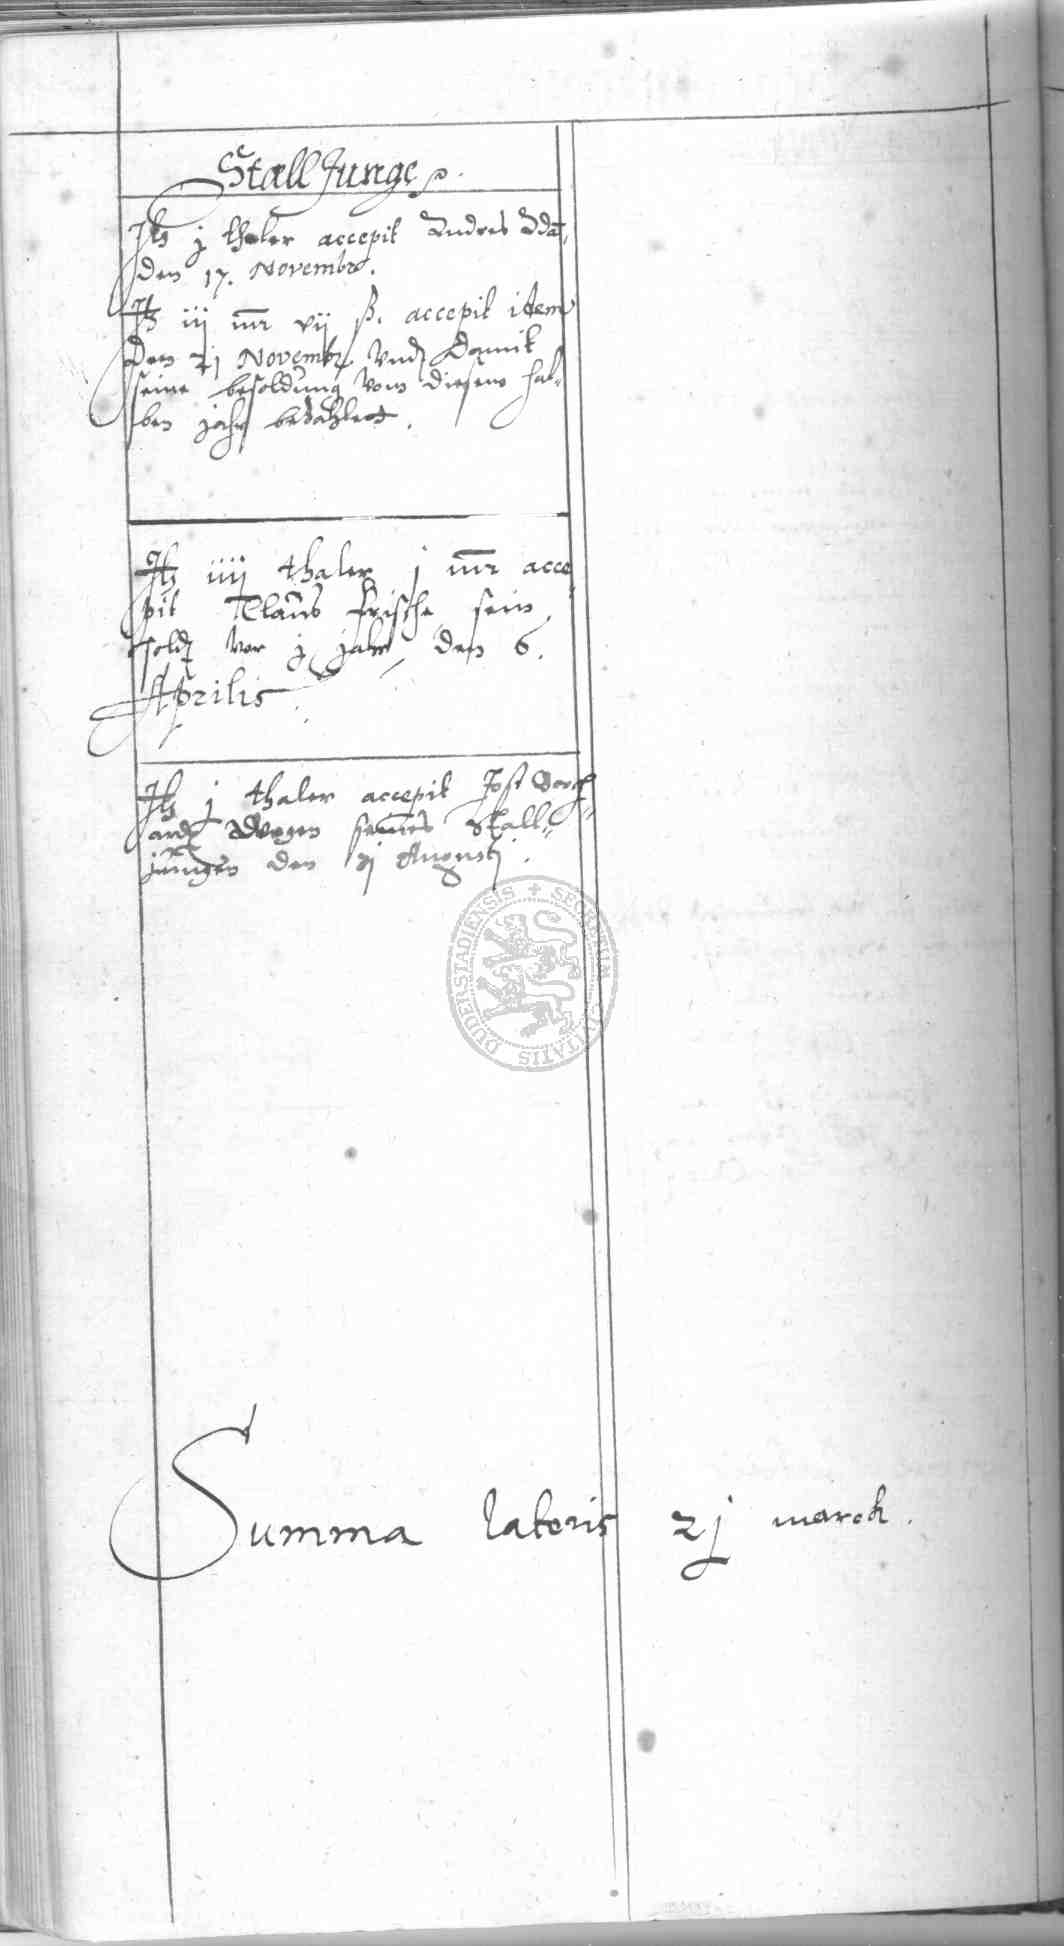 Stall Junge
It j thaler accepit Andres Adā
den 17. Novembr.
It iij mr vij ß. accepit item
den 21 Novembr vnd damit
seine besoldung vom diesem hal-
ben jahr bezahlett.
It iiij thaler j mr acce
pit Clauss Frische sein
sold vor j jahr den 6.
Aprilis
It j thaler accepit Jost
wegen seines Stall-
jungen den Augusti.
SECRETUM CIVITATIS DUDERSTADIENSIS
Summa lateris 2j marck.